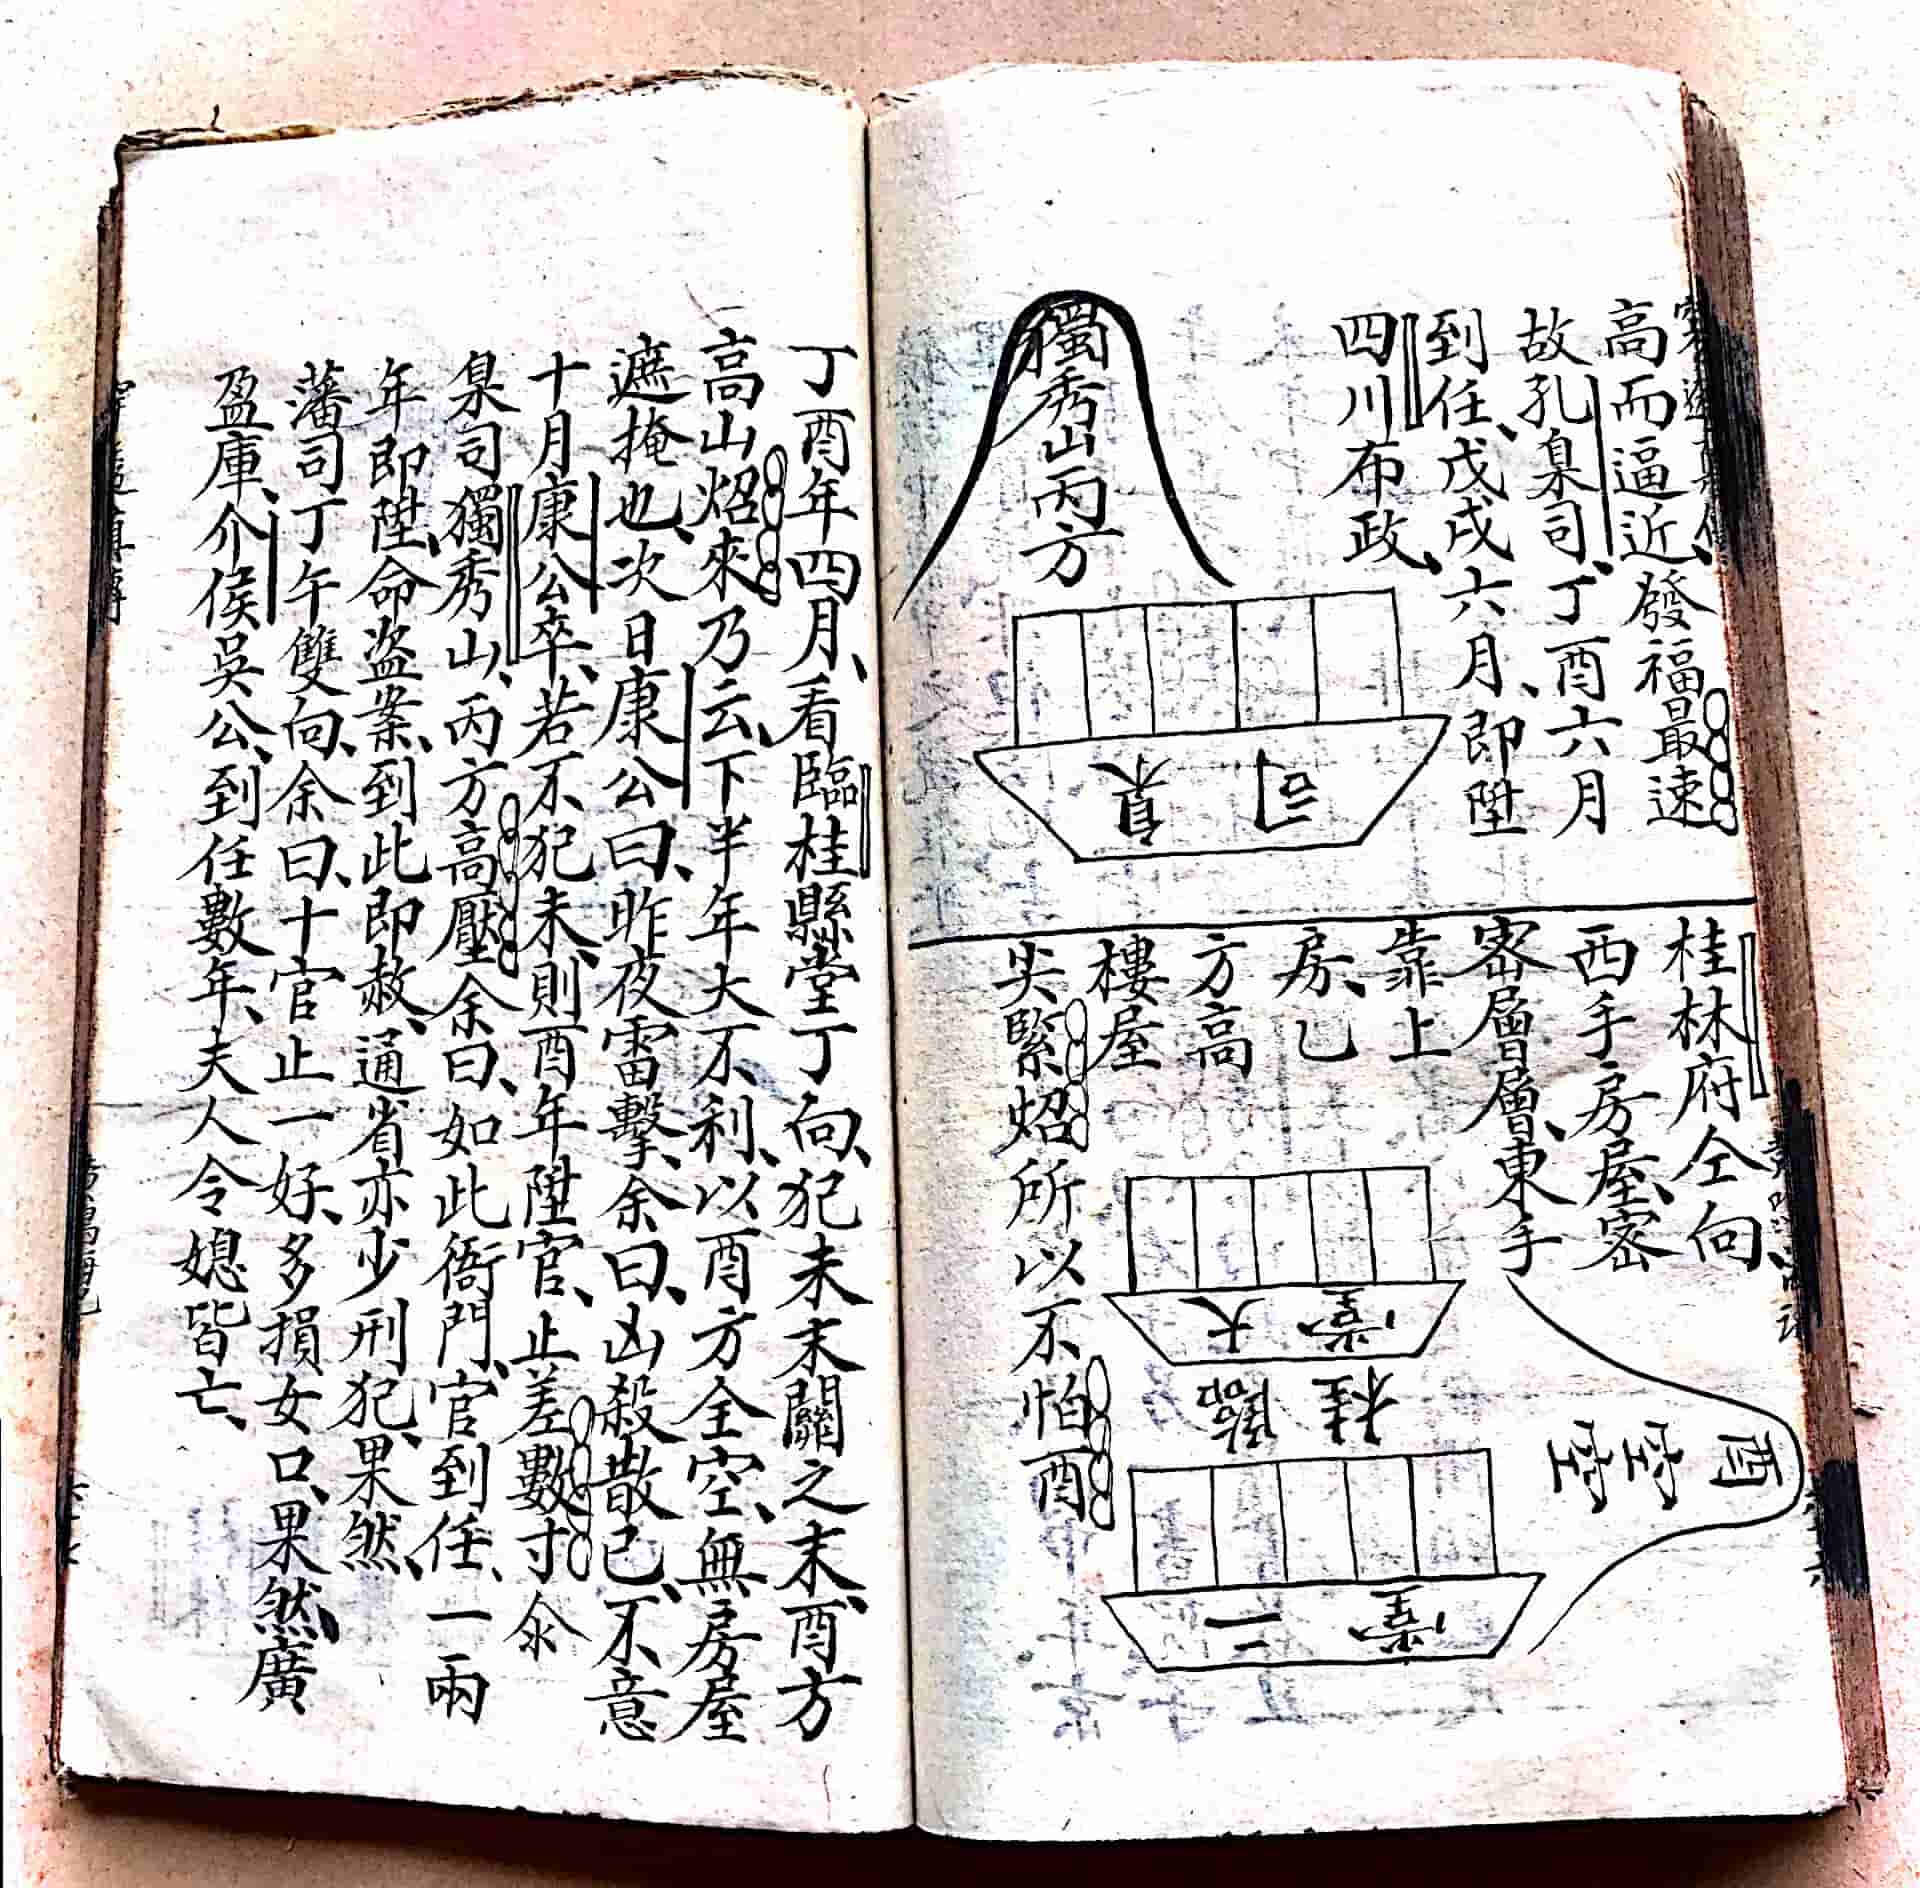 高而逼近發福最速
故孔臬司、丁酉六月
到任、戊戌六月、即陞
四川布政、
獨秀山丙方
臬司
桂林府仝向、
西手房屋、密
密層層、東手
靠上
房、乙
方高
樓屋
尖緊炤所以不怕酉
大堂
臨桂
二堂
酉空空
丁酉年四月、看臨桂縣堂丁向、犯未未關之未、酉方
高山炤來乃云、下半年大不利、以酉方全空、無房屋
遮掩也、次日康公曰、昨夜雷擊、余曰、凶殺散已、不意
十月康公卒、若不犯未、則酉年陞官、止差數寸尒
臬司獨秀山、丙方高壓余曰、如此衙門、官到任、一兩
年即陞、命盜案、到此即赦、通省亦少刑犯、果然、
藩司丁午雙向、余曰、十官止一好、多損女口、果然、廣
盈庫、介侯吳公、到任數年、夫人令媳皆亡、